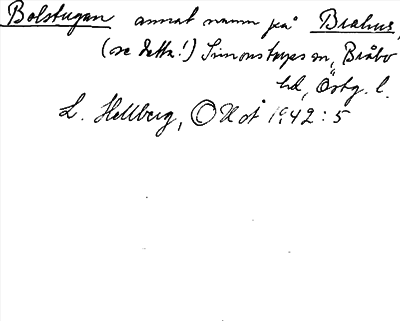 Bolstugan annat namn på Brahus,
(se detta!) Simonstorps sn, Bråbo
hd, Östg. l.
L. Hellberg, OUÅ 1942:5